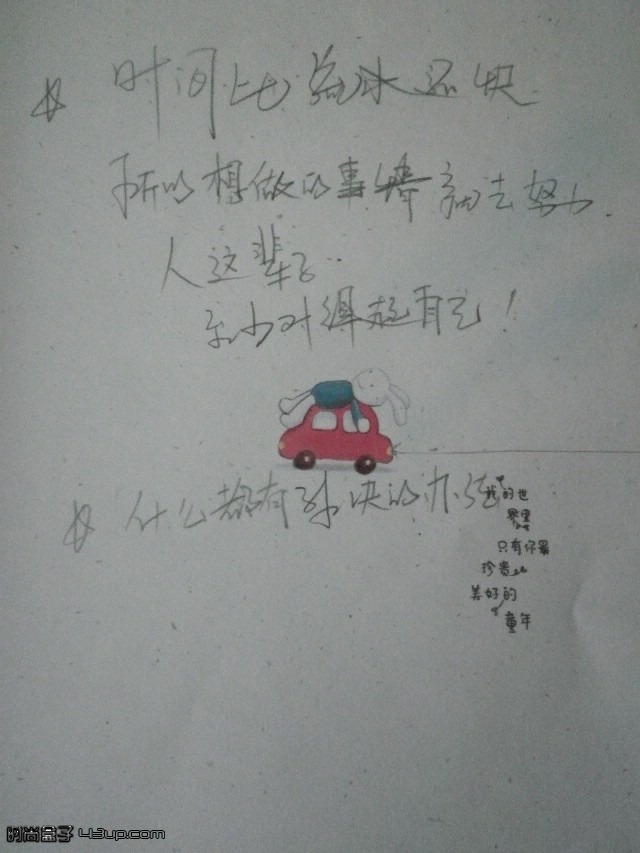 时间比流水还快
所以想做的事情就去努力
人这辈子
至少对得起自己！
什么都有解决的办法
我的世
界里
只有你最
珍贵
美好的
童年
时尚盒子 43up.com